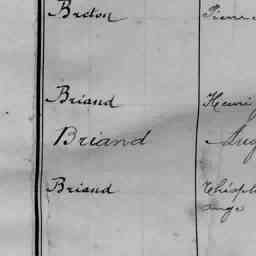 Breton Pierre
Briand Henri
Briand Aug
Briand Théoph
ange